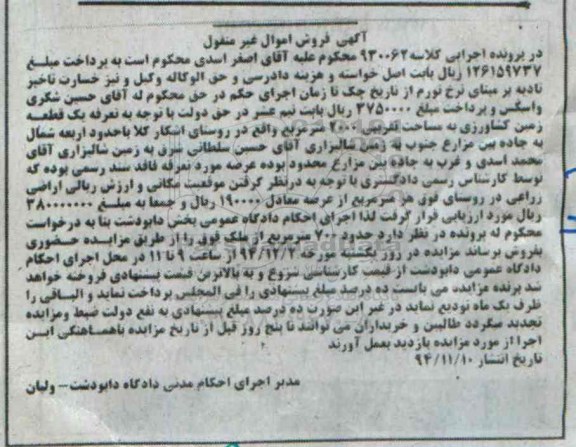 آگهی فروش اموال غیر منقول
در پرونده اجرایی کلاسه ۹۳۰۰۶۲ محکوم علیه آقای اصغر اسدی محکوم است به پرداخت مبلغ
۱۲۶۱۵۹۷۳۷ ریال بابت اصل خواسته و هزینه دادرسی و حق الوکاله وکیل و نیز خسارت تاخیر
تادیه بر مبنای نرخ تورم از تاریخ چک تا زمان اجرای حکم در حق محکوم له آقای حسین شکری
واسکس و پرداخت مبلغ ۳۷۵۰۰۰۰ ریال بابت نیم عشر در حق دولت با توجه به تعرفه یک قطعه
زمین کشاورزی به مساحت تقریبی مترمربع واقع در روستای اسکار کلا باحدود اربعه شمال
به جاده بین مزارع جنوب به زمین شالیزاری آقای حسین سلطانی شرق به زمین شالیزاری آقای
محمد اسدی و غرب به جاده بین مزارع محدود بوده عرصه مورد تعرفه فاقد سند رسمی بوده که
توسط کارشناس رسمی دادگستری با توجه به درنظر گرفتن موقعیت مکانی و ارزش ریالی اراضی
زراعی در روستای فوق هر مترمربع از عرصه معادل ۱۹۰۰۰۰ ریال و جمعا به مبلغ ۳۸۰۰۰۰۰۰۰
ریال مورد ارزیابی قرار گرفت لذا اجرای احکام دادگاه عمومی بخش دابودشت بنا به درخواست
محکوم له پرونده در نظر دارد حدود ۷۰۰ مترمربع از ملک فوق را از طریق مزایده حضوری
بفروش برساند مزایده در روز یکشنبه مورخه ۹۴/۱۲/۲ از ساعت ۹ تا ۱۱ در محل اجرای احکام
دادگاه عمومی دابودشت از قیمت کارشناسی شروع و به بالاترین قیمت پیشنهادی فروخته خواهد
شد برنده مزایده می بایست ده درصد مبلغ پیشنهادی را فی المجلس پرداخت نماید و الباقی را
ظرف یک ماه تودیع نماید در غیر این صورت ده درصد مبلغ پیشنهادی به نفع دولت ضبط ومزایده
تجدید میگردد طالبین و خریداران می توانند تا پنج روز قبل از تاریخ مزایده باهماهنگی این
اجرا از مورد مزایده بازدید بعمل آورند
تاریخ انتشار ۹۴/۱۱/۱۰
مدیر اجرای احکام مدنی دادگاه دابودشت - ولیان